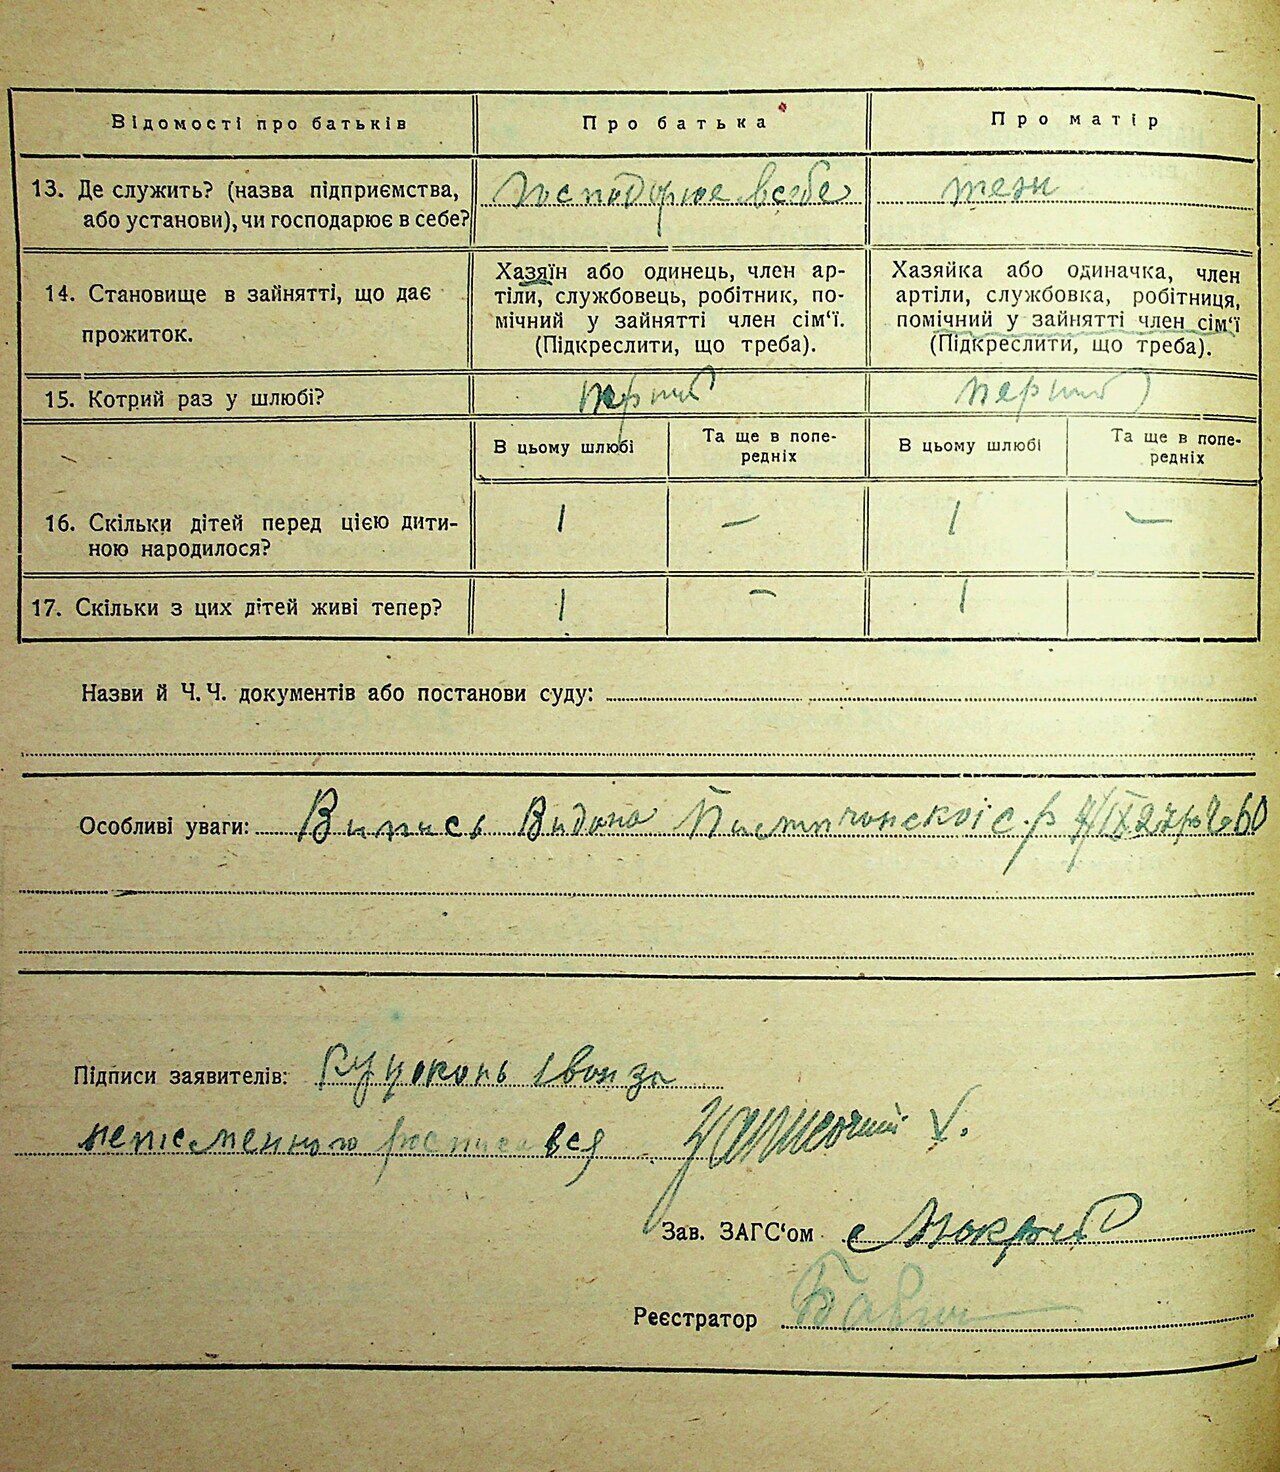 Відомості про батьків Про батька Про матір
13. Де служить? (назва підприємства, або установи), чи господарює в себе? Господарює в себе тежи
14. Становище в зайнятті, що дає прожиток.
Хазяїн або одинець, член ар-
тіли, службовець, робітник, по-
мічний у зайнятті член сім'ї.
(Підкреслити, що треба).
Хазяйка або одиначка, член
артіли, службовка, робітниця,
помічний у зайнятті член сім'ї
(Підкреслити, що треба).
15. Котрий раз у шлюбі? перший перший
В цьому шлюбі Та ще в попе-
редніх В цьому шлюбі Та ще в попе-
редніх
16. Скільки дітей перед цією дити-
ною народилося? 1 — 1 —
17. Скільки з цих дітей живі тепер? 1 — 1
Назви й Ч.Ч. документів або постанови суду:
Особливі уваги: Випись Видана с.р 27р 60
Підписи заявителів: Куцоконь Іван за
неписьменного росписався
Зав. ЗАГС'ом
Реєстратор